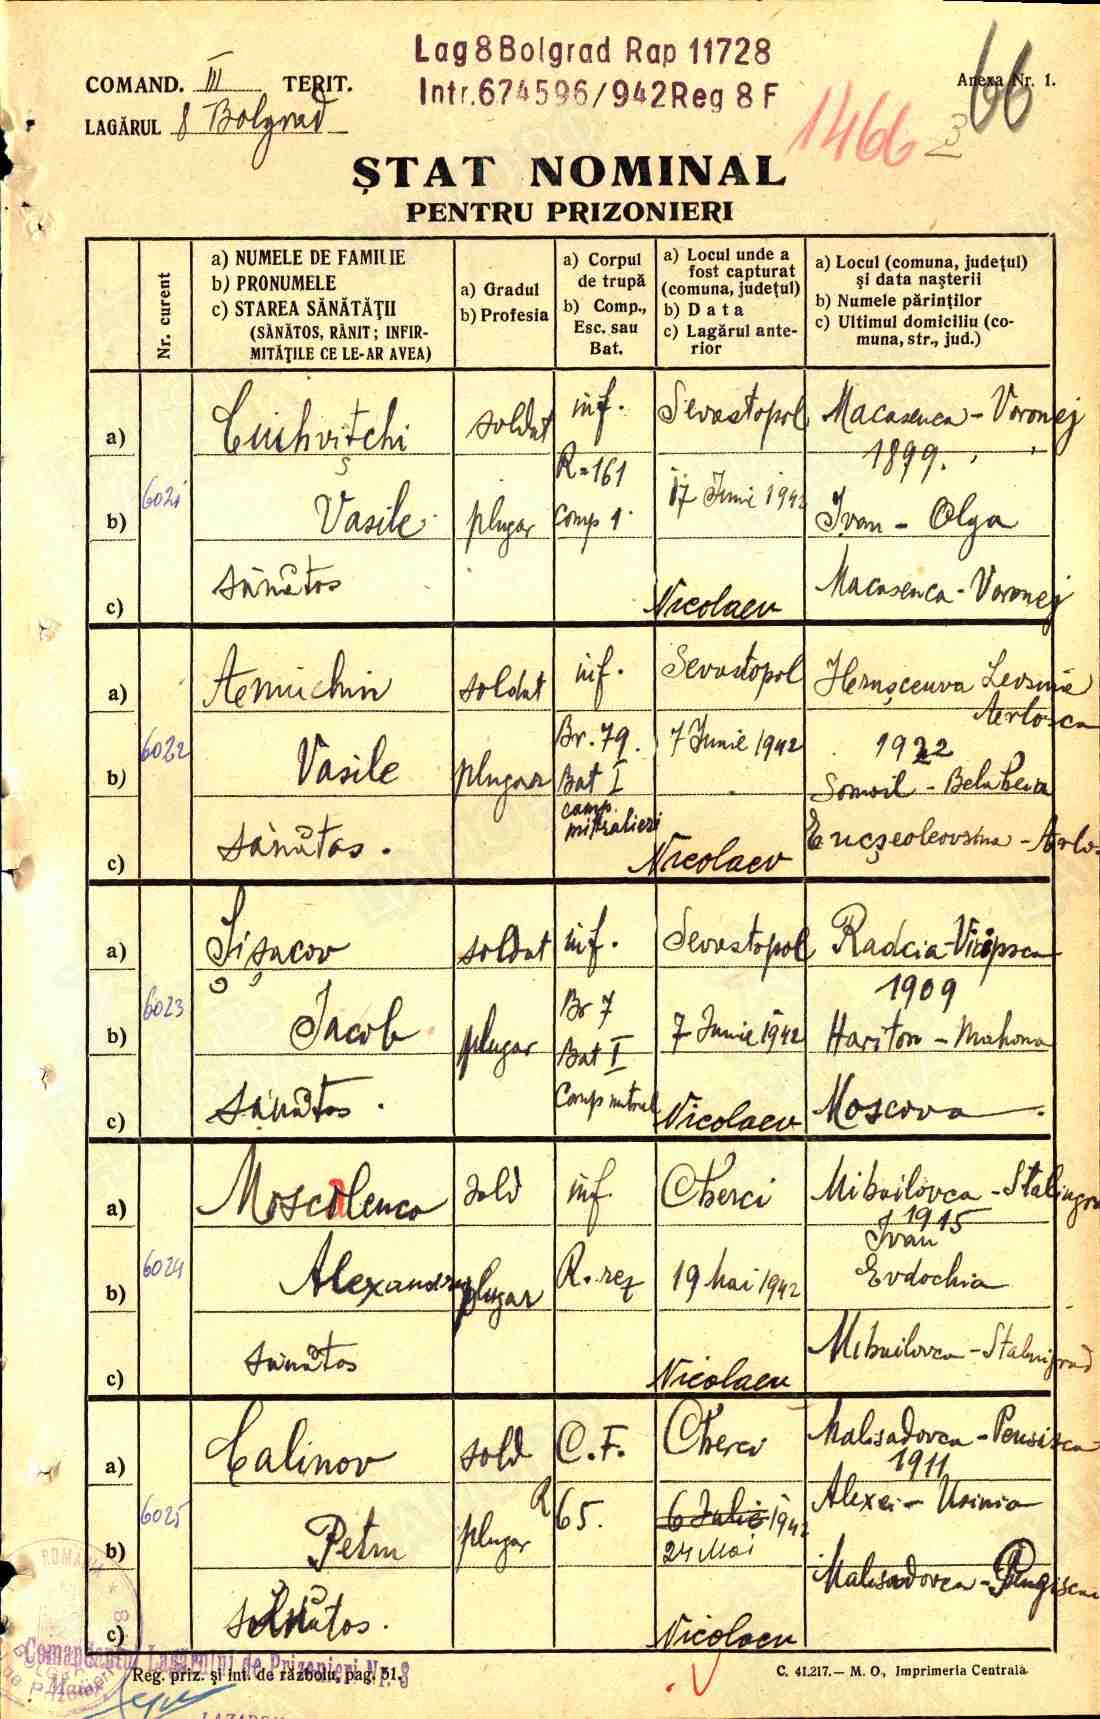 Lag 8 Bolgrad Rap 11728
Intr. 674596/942 Reg 8 F
COMAND. III TERIT.
LAGĂRUL 8 Bolgrad
Anexa Nr. 1.
66
1466
ȘTAT NOMINAL
PENTRU PRIZONIERI
Nr. curent
a) NUMELE DE FAMILIE
b) PRONUMELE
c) STAREA SĂNĂTĂȚII
(SĂNĂTOS, RĂNIT; INFIR-
MITĂȚILE CE LE-AR AVEA)
a) Gradul
b) Profesia
a) Corpul
de trupă
b) Comp.,
Esc. sau
Bat.
a) Locul unde a
fost capturat
(comuna, județul)
b) Data
c) Lagărul ante-
rior
a) Locul (comuna, județul)
și data nașterii
b) Numele părinților
c) Ultimul domiciliu (co-
muna, str., jud.)
a) soldat inf. Sevastopol Macasenca - Voronej
1899.
6021 R=161
b) Vasile plugar Comp 1 17 Iunie 1942 Ivan - Olga
c) sănătos Nicolaev Macasenca - Voronej
a) Aemichin soldat inf. Sevastopol
6022 Br. 79. 7 Iunie 1942 1922
b) Vasile plugar Bat I
comp.
mitralieri
c) sănătos. Nicolaev
a) Șișacov soldat inf. Sevastopol Radcia
1909
6023 Br 7
b) Iacob plugar Bat I 7 Iunie 1942 Hariton - Mahona
c) sănătos. Comp mitral Nicolaev Moscova
a) Moscalenco sold inf. Cherci Mihailovca - Stalingrad
1915
Ivan
6024
b) Alexandru plugar R. rez 19 Mai 1942 Evdochia
c) sănătos Nicolaev Mihailovca - Stalingrad
a) Calinov sold C.F. Cherci Malisadovca
1911
6025 R 65. 6 Iulie 1942 Alexei
b) Petru plugar 24 Mai
Malisadovca
c) sănătos. Nicolaev
ROMANIA
Comandantul Lagărului de Prizonieri Nr. 8
Maior
Reg. priz. și int. de războiu, pag. 51.
C. 41.217. — M. O., Imprimeria Centrală